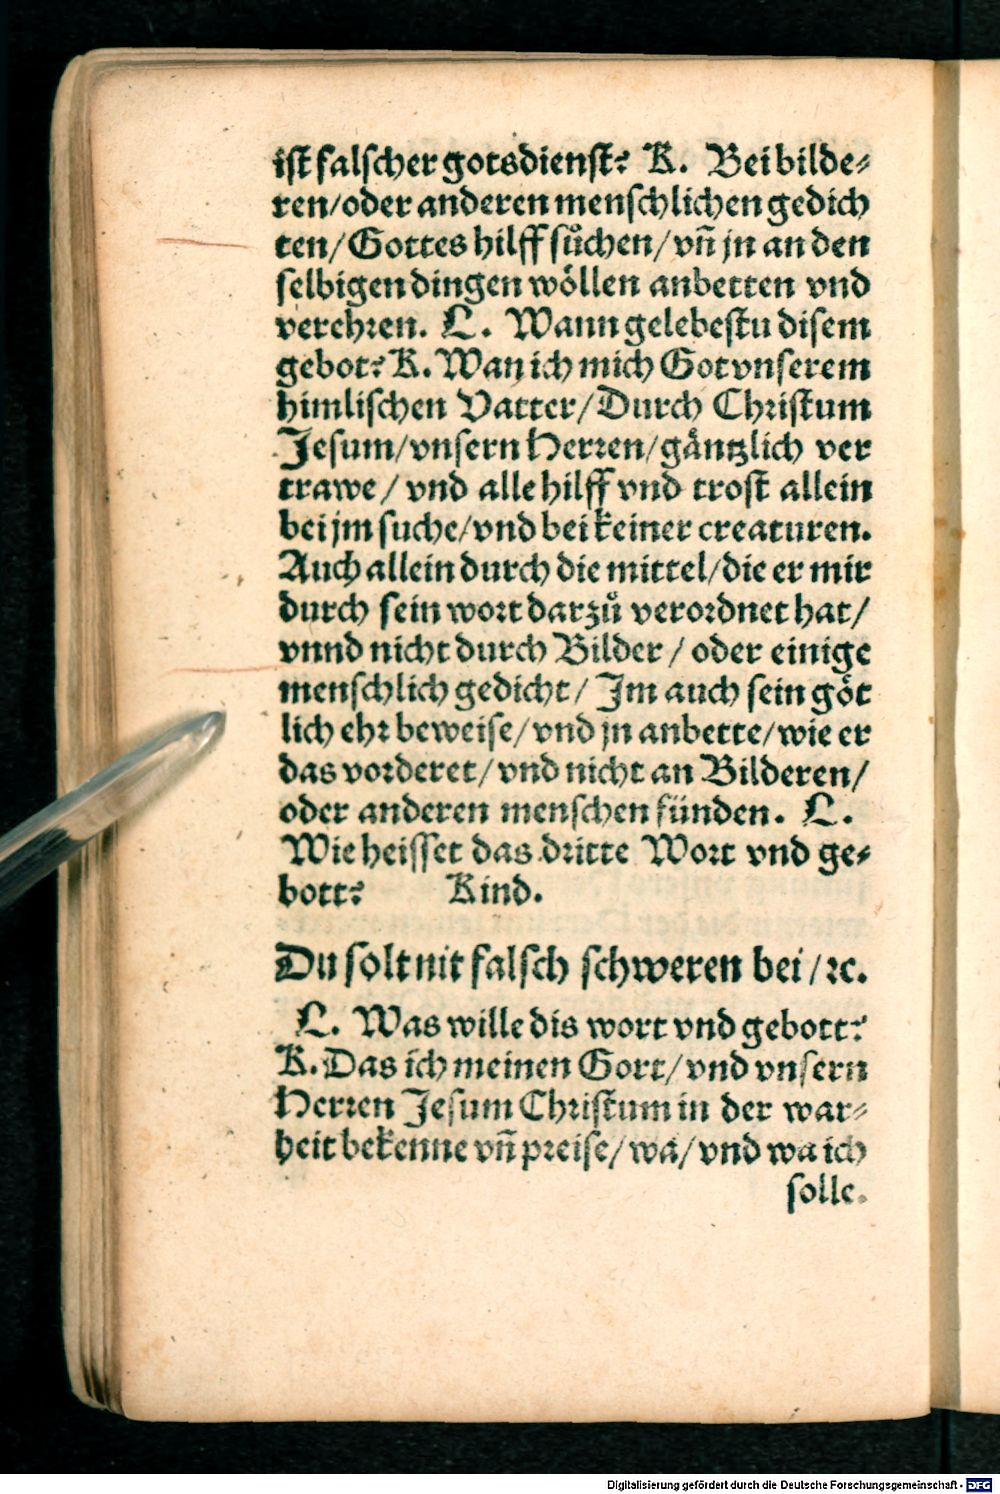 ist falscher gotsdienst? K. Bei bilde⸗
ren/oder anderen menschlichen gedich
ten/Gottes hilff sůchen/vñ jn an den
selbigen dingen wöllen anbetten vnd
verehren. L. Wann gelebestu disem
gebot? K. Wan ich mich Got vnserem
himlischen Vatter/Durch Christum
Jesum/vnsern Herren/gäntzlich ver
trawe / vnd alle hilff vnd trost allein
bei jm suche/vnd bei keiner creaturen.
Auch allein durch die mittel/die er mir
durch sein wort darzů verordnet hat/
vnnd nicht durch Bilder / oder einige
menschlich gedicht/ Jm auch sein göt
lich ehr beweise/vnd jn anbette/wie er
das vorderet/vnd nicht an Bilderen/
oder anderen menschen fünden. L.
Wie heisset das dritte Wort vnd ge⸗
bott? Kind.
Du solt nit falsch schweren bei /ꝛc.
L. Was wille dis wort vnd gebott?
K. Das ich meinen Gott/vnd vnsern
Herren Jesum Christum in der war⸗
heit bekenne vñ preise/wa/vnd wa ich
solle.
Digitalisierung gefördert durch die Deutsche Forschungsgemeinschaft - DFG